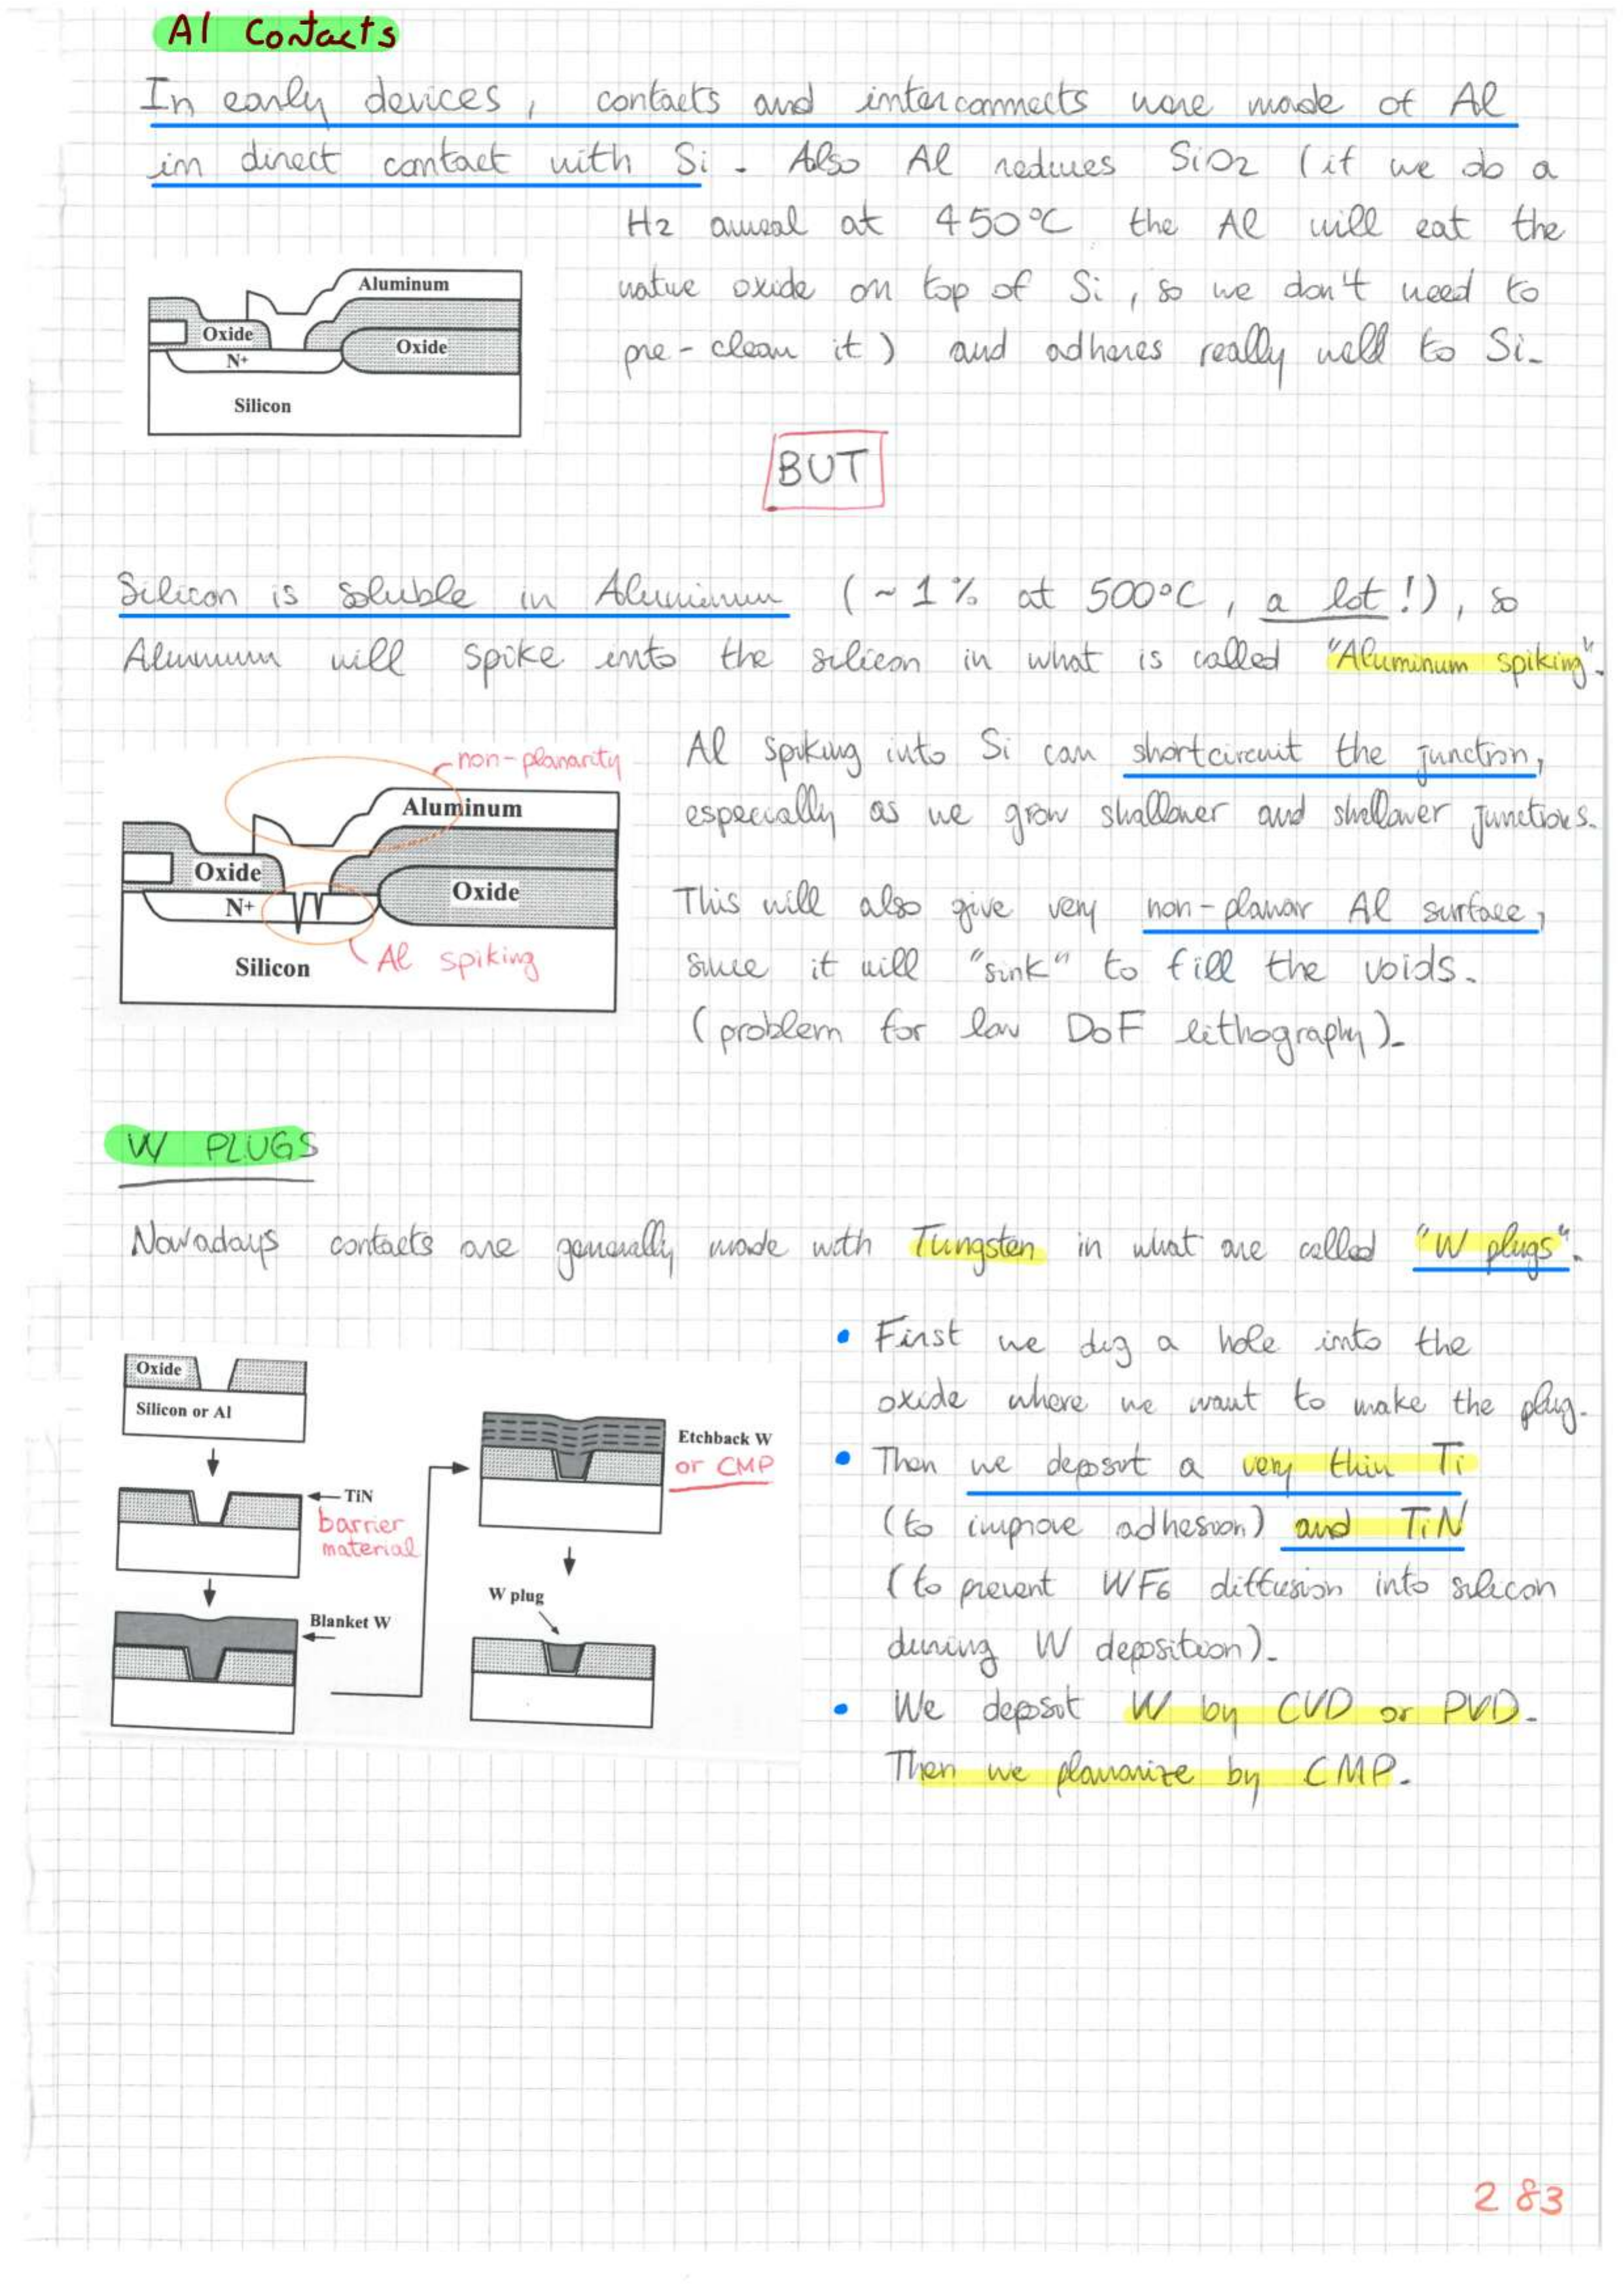 Al Contacts
In early devices, contacts and interconnects were made of Al
in direct contact with Si. Also Al reduces SiO2 (if we do a
H2 anneal at 450°C the Al will eat the
native oxide on top of Si, so we don't need to
pre-clean it) and adheres really well to Si.
Aluminum
Oxide
Oxide
N+
Silicon
BUT
Silicon is soluble in Aluminum (~1% at 500°C, a lot!), so
Aluminum will spike into the silicon in what is called "Aluminum spiking".
non-planarity
Aluminum
Oxide
Oxide
N+
Silicon
Al spiking
Al spiking into Si can shortcircuit the junction,
especially as we grow shallower and shallower junctions.
This will also give very non-planar Al surface,
since it will "sink" to fill the voids.
(problem for low DoF lithography).
W PLUGS
Nowadays contacts are generally made with Tungsten in what are called "W plugs".
Oxide
Silicon or Al
TiN
barrier
material
Blanket W
Etchback W
or CMP
W plug
• First we dig a hole into the
oxide where we want to make the plug.
• Then we deposit a very thin Ti
(to improve adhesion) and TiN
(to prevent WF6 diffusion into silicon
during W deposition).
• We deposit W by CVD or PVD.
Then we planarize by CMP.
283